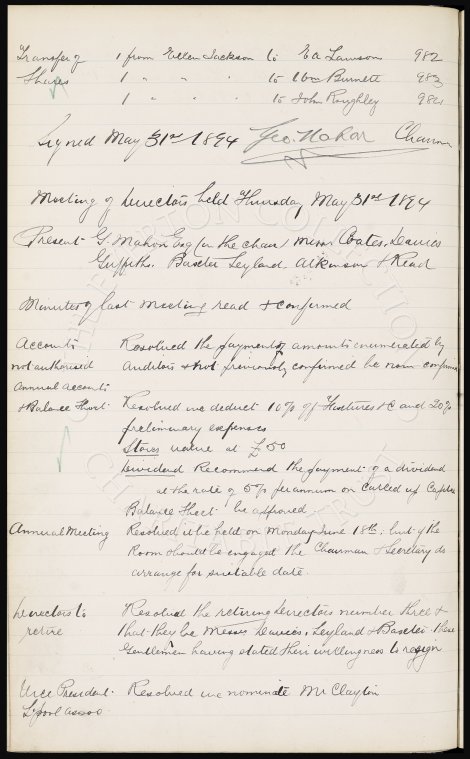 Transfer of 1 from Ellen Jackson to Ed Lawsons 982
Shares 1 " " " to Wm Burnett 983
1 " " " to John Roughley 984
Signed May 31st 1894 Geo. Mahon Chairman
Meeting of Directors held Thursday May 31st 1894
Present G. Mahon Esq (in the chair) Messrs Coates, Davies
Griffiths, Baxter Leyland, Atkinson & Read
Minutes of last meeting read & confirmed
Accounts Resolved the payments of amounts enumerated by
not authorised Auditors & not previously confirmed be now confirmed
Annual Accounts
& Balance Sheet Resolved we deduct 10% off Fixtures &c and 20%
preliminary expenses
Stores value at £50
Dividend Recommend the payment of a dividend
at the rate of 5% per annum on called up Capital
Balance Sheet be approved
Annual Meeting Resolved it be held on Monday June 18th; but if the
Room should be engaged the Chairman & Secretary do
arrange for suitable date.
Directors to Resolved the retiring Directors number three &
retire that they be Messrs Davies, Leyland & Baxter these
Gentlemen having stated their willingness to resign
Vice President Resolved we nominate Mr Clayton
L'pool Assoc